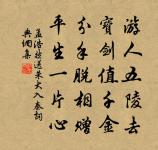 游人五陵去
寳剑值千金
分手脱相赠
平生一片心
孟浩然送朱大入秦詞
典個集